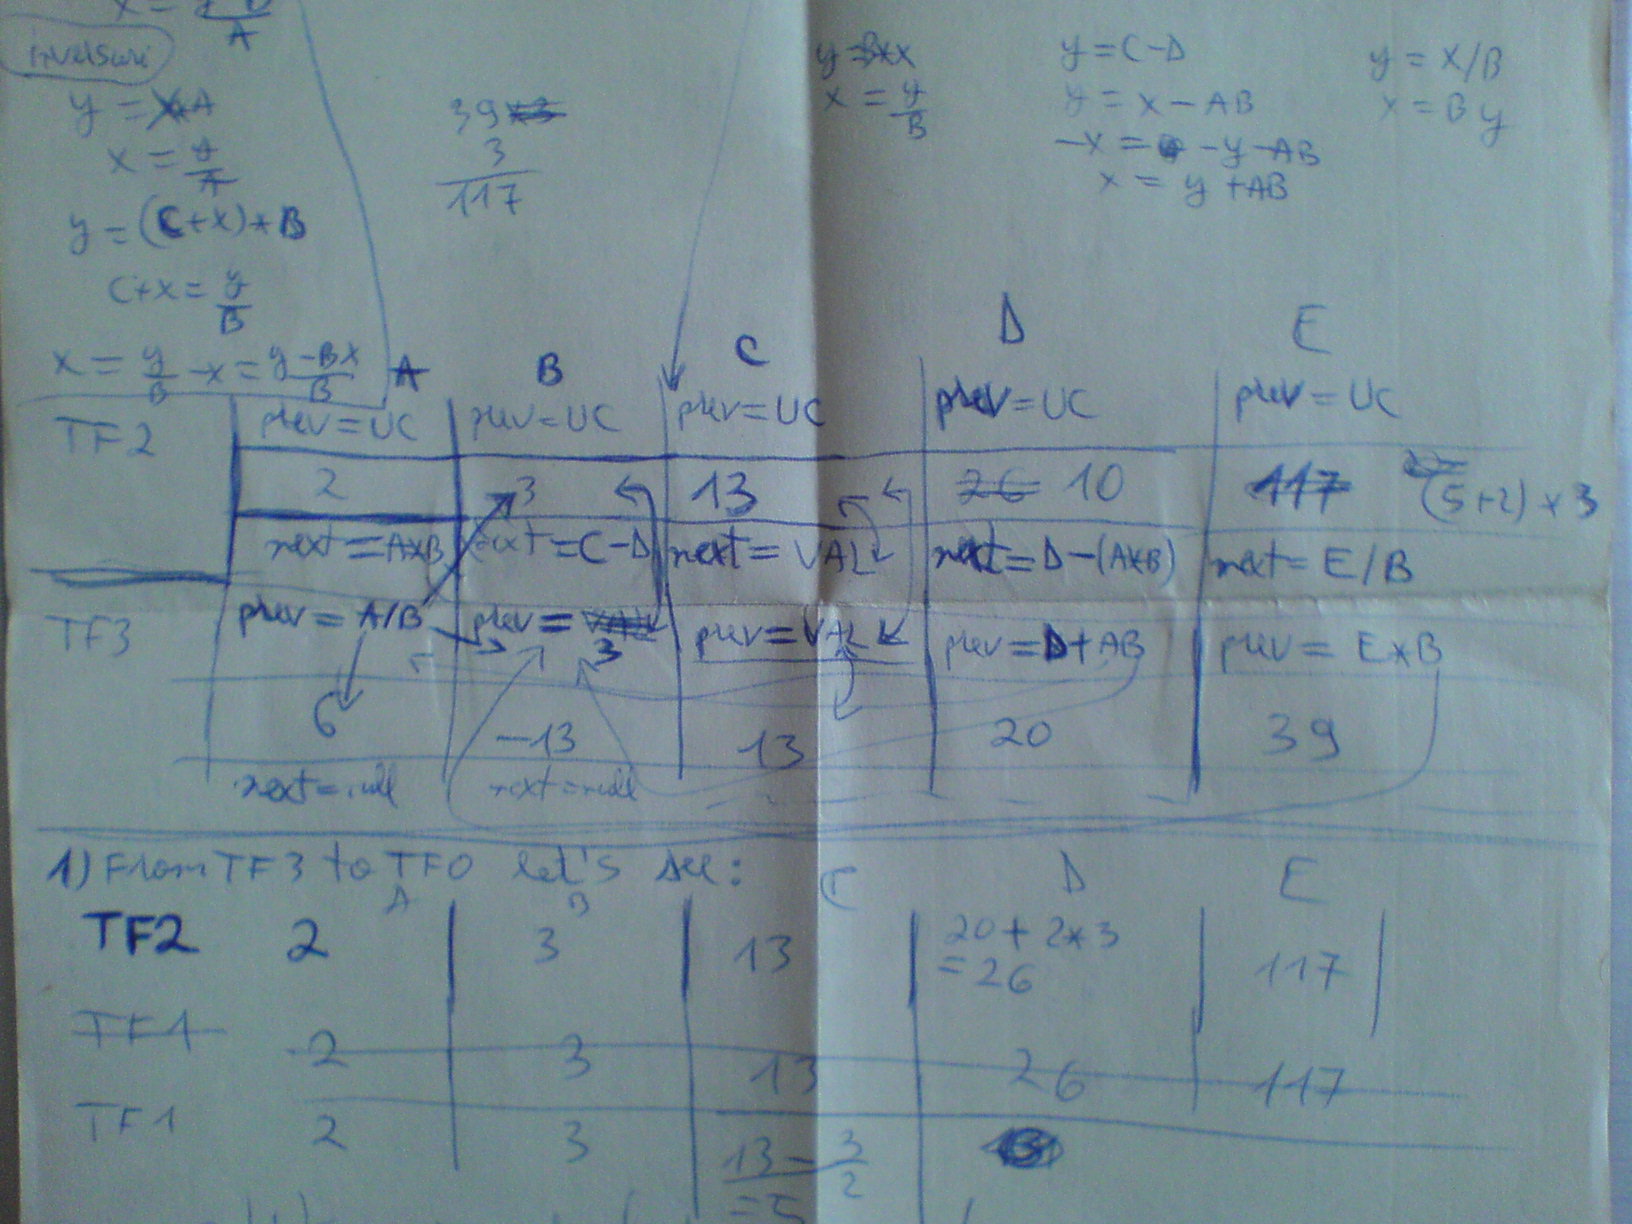 A
y = x*A
x = y/A
y = (C+x)*B
C+x = y/B
x = y/B - x = y-Bx/B
39
3
117
y=B*x
x = y/B
y=C-D
y = x-AB
-x = -y-AB
x = y+AB
y = x/B
x = By
A B C D E
TF2 prev=UC prev=UC prev=UC prev=UC prev=UC
2 3 13 26 10 117 (5+2)*3
next=A*B next=C-D next=VAL next=D-(A*B) next=E/B
TF3 prev=A/B prev=VAL 3 prev=VAL prev=D+AB prev=E*B
6 -13 13 20 39
next=null next=null
1) From TF3 to TF0 let's see:
A B C D E
TF2 2 3 13 20+2*3 =26 117
TF1 2 3 13 26 117
TF1 2 3 13-3/2